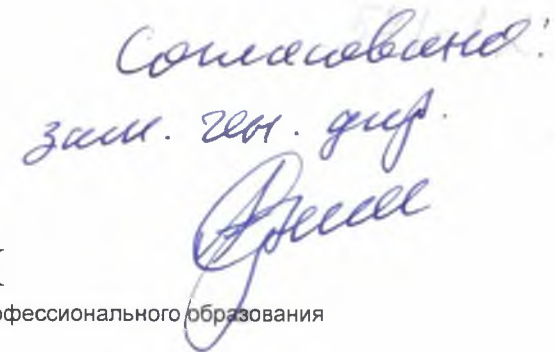 Согласовано:
зам. ген. дир.
офессионального образования